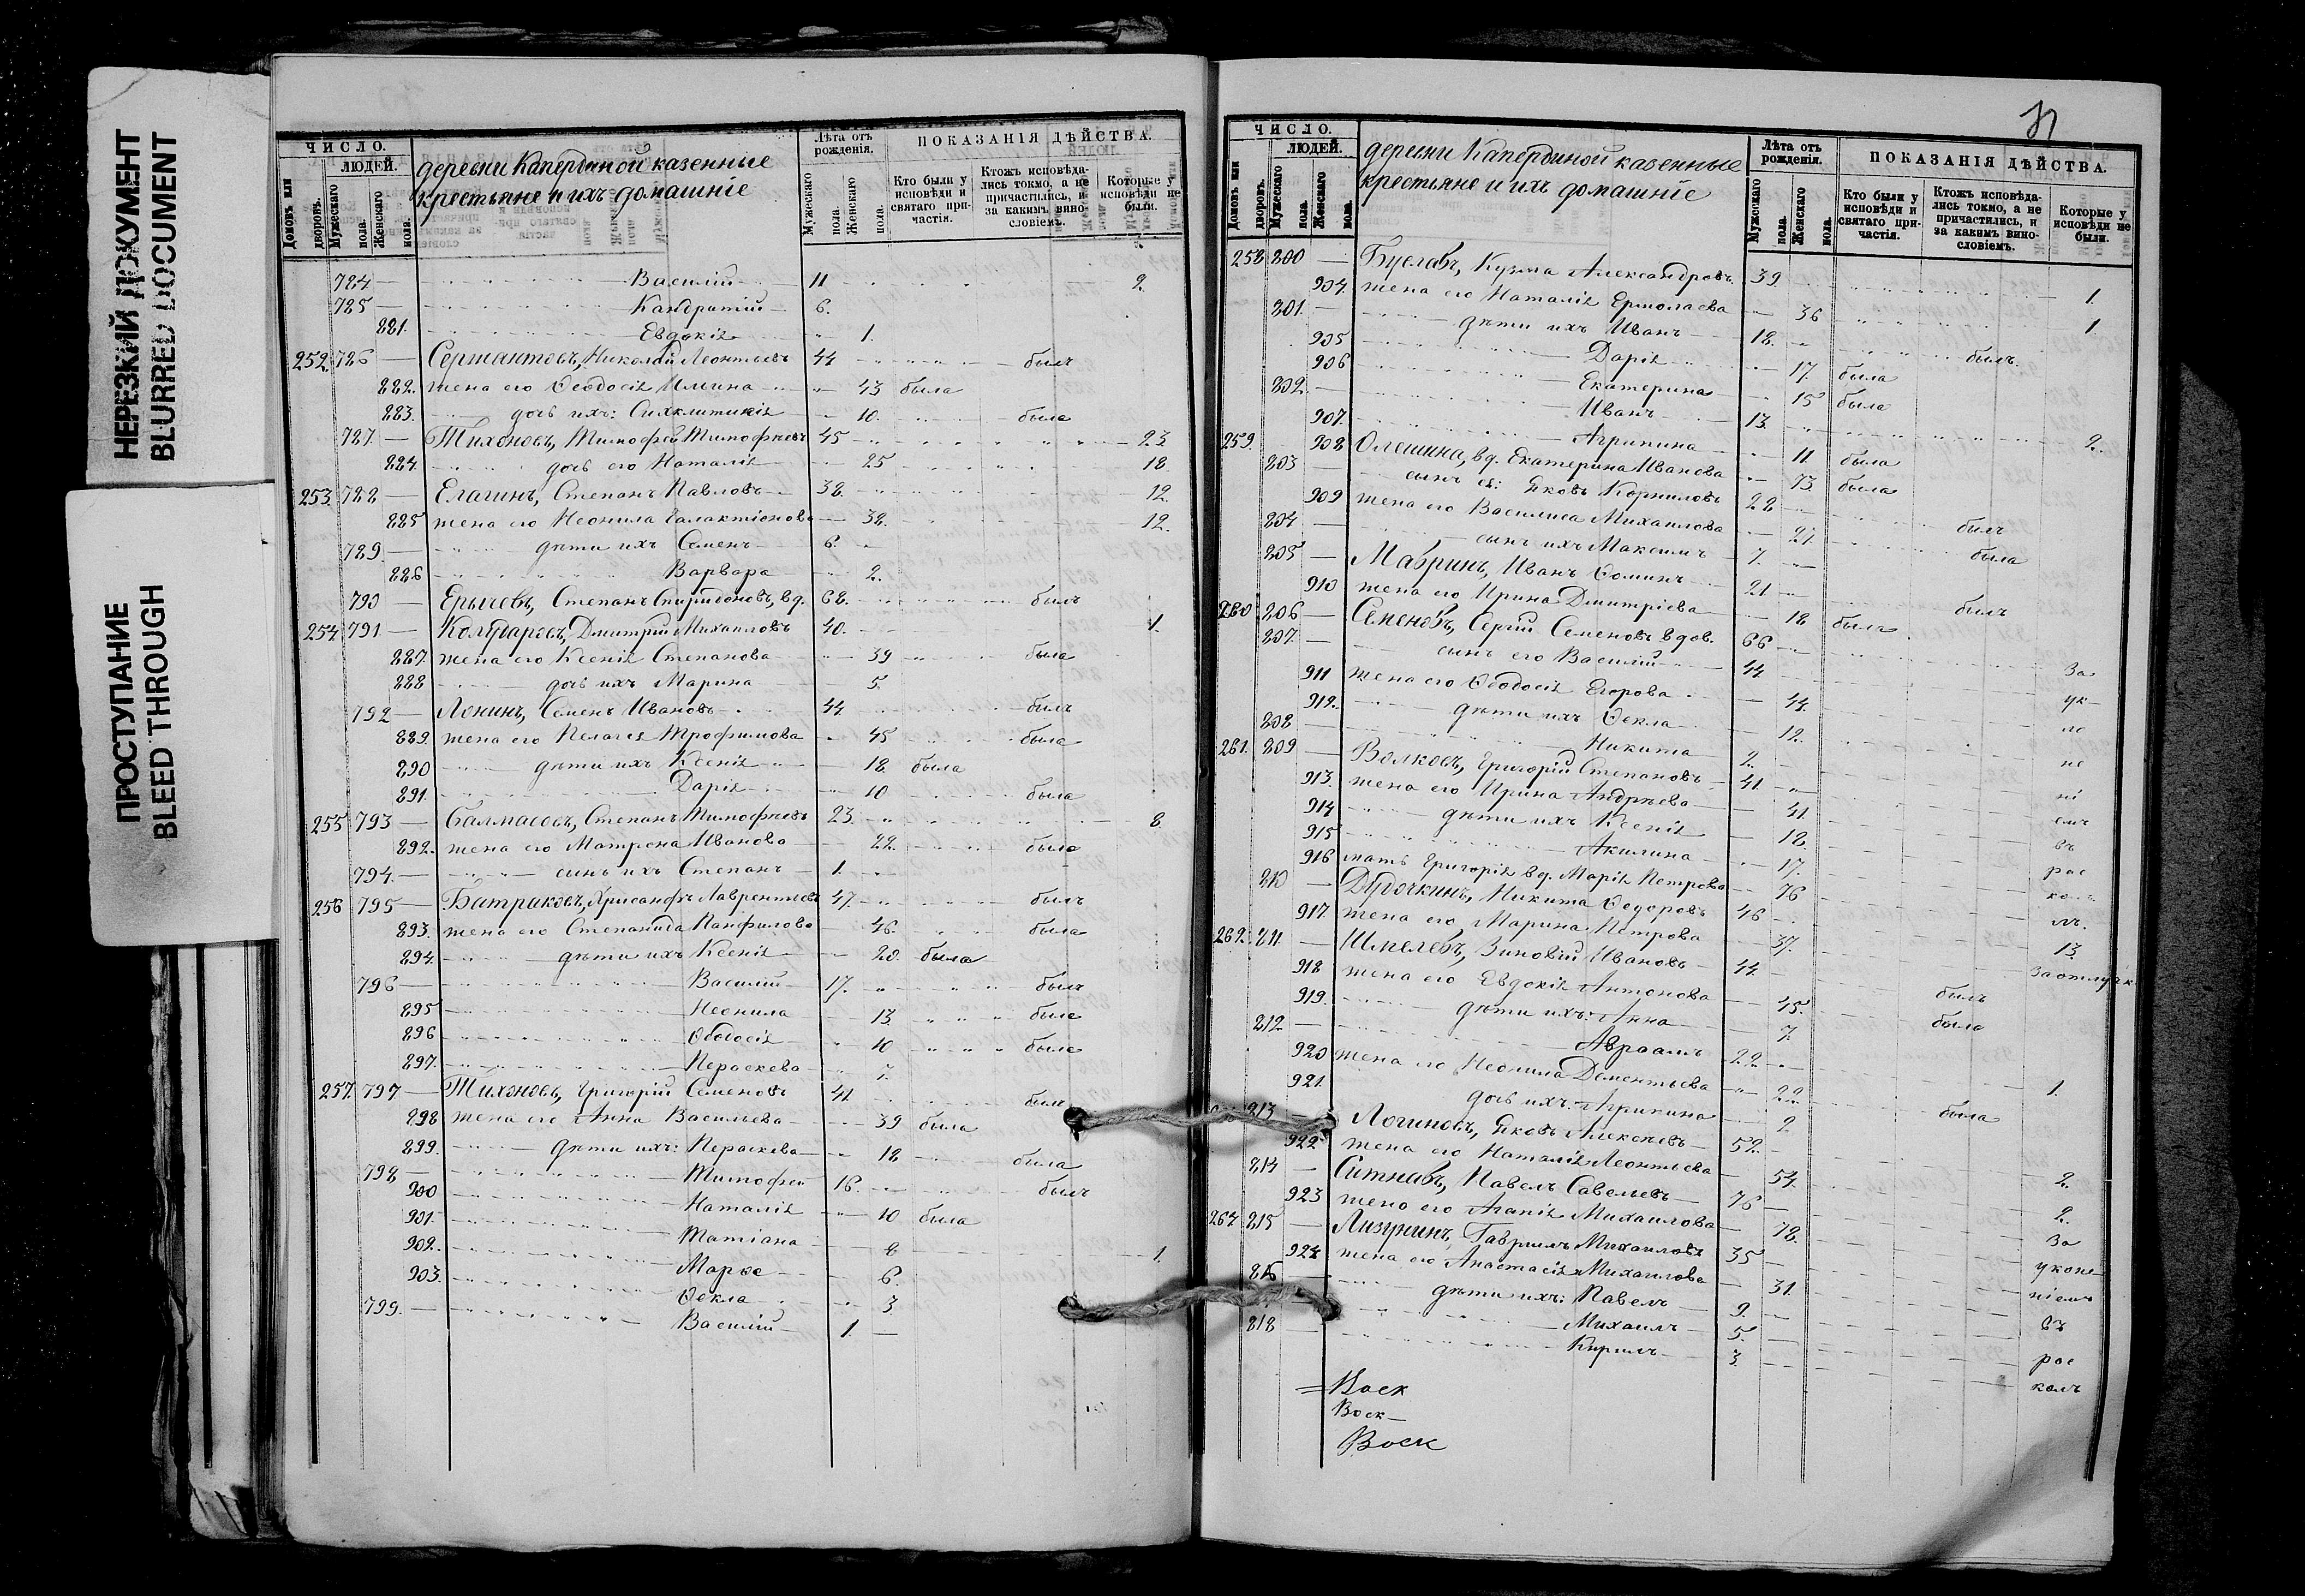 НЕРЕЗКИЙ ДОКУМЕНТ
BLURRED DOCUMENT
ПРОСТУПАНИЕ
BLEED THROUGH
ЧИСЛО.
ЛЮДЕЙ.
Домовъ или дворовъ.
Мужескаго пола.
Женскаго пола.
деревни Капердиной казенные
крестьяне и ихъ домашніе
Лѣта отъ рожденія.
Мужескаго пола.
Женскаго пола.
ПОКАЗАНІЯ ДѢЙСТВА.
Кто были у исповѣди и святаго причастія.
Ктожъ исповѣдались токмо, а не причастились, и за какимъ винословіемъ.
Которые у исповѣди не были.
784 Василій 11 2.
785 Кандратій 6.
881. Евдокія 1.
252. 786 Сержантовъ, Николай Леонтьевъ 44 былъ
882. жена его Ѳеодосія Ильина 43 была
883. дочь ихъ: Сихклитикія 10. была
787. Тихоновъ, Тимофей Тимофѣевъ 45 23
884. дочь его Наталія 25 18.
253. 788 Елагинъ, Степанъ Павловъ 38. 12.
885 жена его Неонила Галактіонова 38. 12.
789 дѣти ихъ Семенъ 6.
886 Варвара 2.
790 Ерычевъ, Степанъ Спиридоновъ, вд. 68. былъ
254 791. Дмитрій Михаиловъ 40. 1.
887. жена его Ксенія Степанова 39 была
888 дочь ихъ Марина 5.
792 Лонинъ, Семенъ Ивановъ 44 былъ
889. жена его Пелагея Трофимова 45 была
890 дѣти ихъ Ксенія 18. была
891. Дарія 10 была
255 793 Балмасовъ, Степанъ Тимофѣевъ 23. 8
892. жена его Матрона Иванова 22. была
794. сынъ ихъ Степанъ 1.
256 795 Батраковъ, Хрисанфъ Лаврентьевъ 47. былъ
893. жена его Степанида Панфилова 46. была
894. дѣти ихъ Ксенія 20. была
796 Василій 17. былъ
895 Неонила 13. была
896 Ѳеодосія 10 была
897. Пераскева 7.
257. 797 Тихоновъ, Григорій Семеновъ 41 былъ
898 жена его Анна Васильева 39 была
899. дѣти ихъ: Пераскева 18 была
798 Тимофей 16. былъ
900 Наталія 10 была
901. Татіана 8 1.
902. Марѳа 6.
903. Ѳекла 3.
799. Василій 1.
31
ЧИСЛО.
ЛЮДЕЙ.
Домовъ или дворовъ.
Мужескаго пола.
Женскаго пола.
деревни Капердиной казенные
крестьяне и ихъ домашніе
Лѣта отъ рожденія.
Мужескаго пола.
Женскаго пола.
ПОКАЗАНІЯ ДѢЙСТВА.
Кто были у исповѣди и святаго причастія.
Ктожъ исповѣдались токмо, а не причастились, и за какимъ винословіемъ.
Которые у исповѣди не были.
258 800 Буславъ, Кузма Александровъ 39. 1.
904. жена его Наталія Ермолаева 36 1.
801. дѣти ихъ Иванъ 18. былъ.
905 Дарія 17. была
906 Екатерина 15 была
802. Иванъ 13. 2.
907. Агрипина 11 была
259. 908 Олешина, вд. Екатерина Иванова 73. была
803 сынъ ея: Яковъ Корниловъ 28 былъ
909 жена его Василиса Михаилова 27. была
804 сынъ ихъ Максимъ 7.
805 Мавринъ, Иванъ Ѳоминъ 21 былъ
910 жена его Ирина Дмитріева 18 была
260 806 Семеновъ, Сергій Семеновъ вдов. 66 за
807. сынъ его Василій 44 ук
911 жена его Ѳеодосія Егорова 44. ло
912. дѣти ихъ Ѳекла 12. не
808 Никита 2. ні
261. 809 Волковъ, Григорій Степановъ 41. емъ
913. жена его Ирина Андрѣева 41 въ
914 дѣти ихъ Ксенія 18. рас
915 Акилина 17. кол
916 мать Григорія вд. Марія Петрова 76 лъ.
810 Дудочкинъ, Никита Ѳедоровъ 46 13
917. жена его Марина Петрова 37. за отлучк
262. 811. Шмелевъ, Зиновій Ивановъ 44. былъ
918 жена его Евдокія Антонова 45. была
919. дѣти ихъ: Анна 7.
812. Авраамъ 22. 1.
920 жена его Неонила Дементьева 22. была
921. дочь ихъ: Агрипина 2
813 Логиновъ, Яковъ Алексѣевъ 52. 2.
922 жена его Наталія Леонтьева 54. 2.
814 Ситнавъ, Павелъ Савельевъ 76 за
923 жена его Агапія Михаилова 78. уконе
264 815 Лизунинъ, Гаврiилъ Михаиловъ 35 ніемъ
924 жена его Анастасія Михаилова 31. въ
816 дѣти ихъ: Павелъ 9. рас
Михаилъ 5. колъ
818 Кирилъ 3
Воск
Воск
Воск